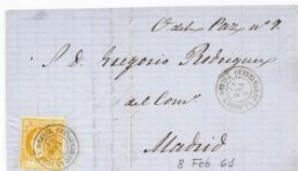 C. del Paz nº 9.
S. D. Gregorio Rodriguez
del Comº
Madrid
8 Feb 61